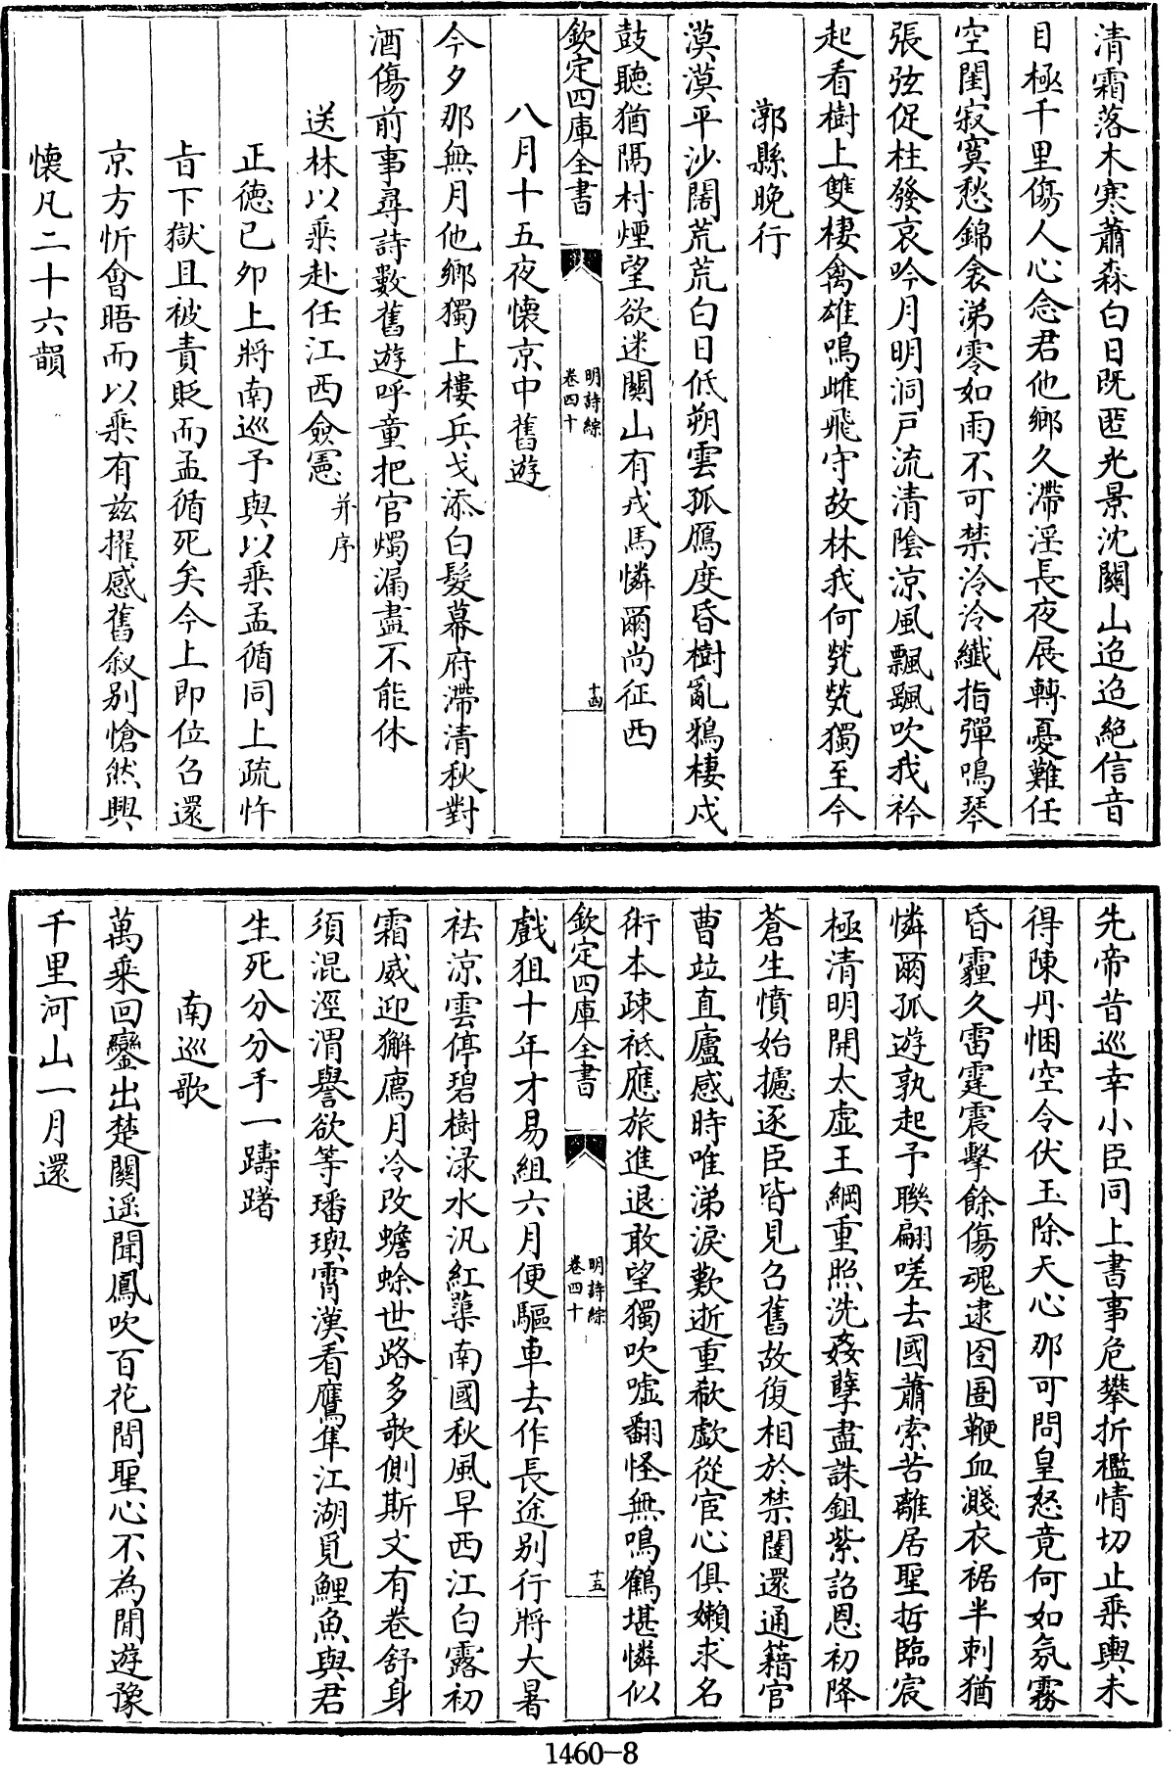 清霜落木寒蕭森白日既匿光景沈關山迢迢絶信音
目極千里傷人心念君他鄉久滯淫長夜展轉憂難任
空閨寂寞愁錦衾涕零如雨不可禁泠泠纎指彈鳴琴
張弦促柱發哀吟月明洞戸流清陰涼風飄颻吹我衿
起看樹上雙棲禽雄鳴雌飛守故林我何煢煢獨至今
漷縣晚行
漠漠平沙闊荒荒白日低朔雲孤鴈度昏樹亂鴉棲戍
鼓聽猶隔村煙望欲迷關山有戎馬憐爾尚征西
欽定四庫全書
明詩綜
卷四十
十四
八月十五夜懐京中舊遊
今夕那無月他鄉獨上樓兵戈添白髮幕府滯清秋對
酒傷前事尋詩數舊遊呼童把官燭漏盡不能休
送林以乘赴任江西僉憲并序
正德已夘上將南巡予與以乘孟循同上疏忤
㫖下獄且被責貶而孟循死矣今上即位召還
京方忻會晤而以乘有兹擢感舊叙别愴然興
懐凡二十六韻
先帝昔巡幸小臣同上書事危攀折檻情切止乘輿未
得陳丹悃空令伏玉除天心那可問皇怒竟何如氛霧
昏霾久雷霆震擊餘傷魂逮囹圄鞭血濺衣裾半刺猶
憐爾孤遊孰起予聯翩嗟去國蕭索苦離居聖哲臨宸
極清明開太虛王綱重照洗姦孽盡誅鉏紫詔恩初降
蒼生憤始攄逐臣皆見召舊故復相於禁闥還通籍官
曹竝直廬感時唯涕淚歎逝重欷歔從宦心俱嬾求名
術本疎衹應旅進退敢望獨吹噓翻怪無鳴鶴堪憐似
欽定四庫全書
明詩綜
卷四十
十五
戲狙十年才易組六月便驅車去作長途别行將大暑
袪凉雲停碧樹渌水汎紅蕖南國秋風早西江白露初
霜威迎獬廌月冷改蟾蜍世路多歌側斯文有卷舒身
須混涇渭譽欲等璠璵霄漢看鷹隼江湖覓鯉魚與君
生死分分手一躊躇
南巡歌
萬乘回鑾出楚關遥聞鳳吹百花間聖心不為閒遊豫
千里河山一月還
1460-8